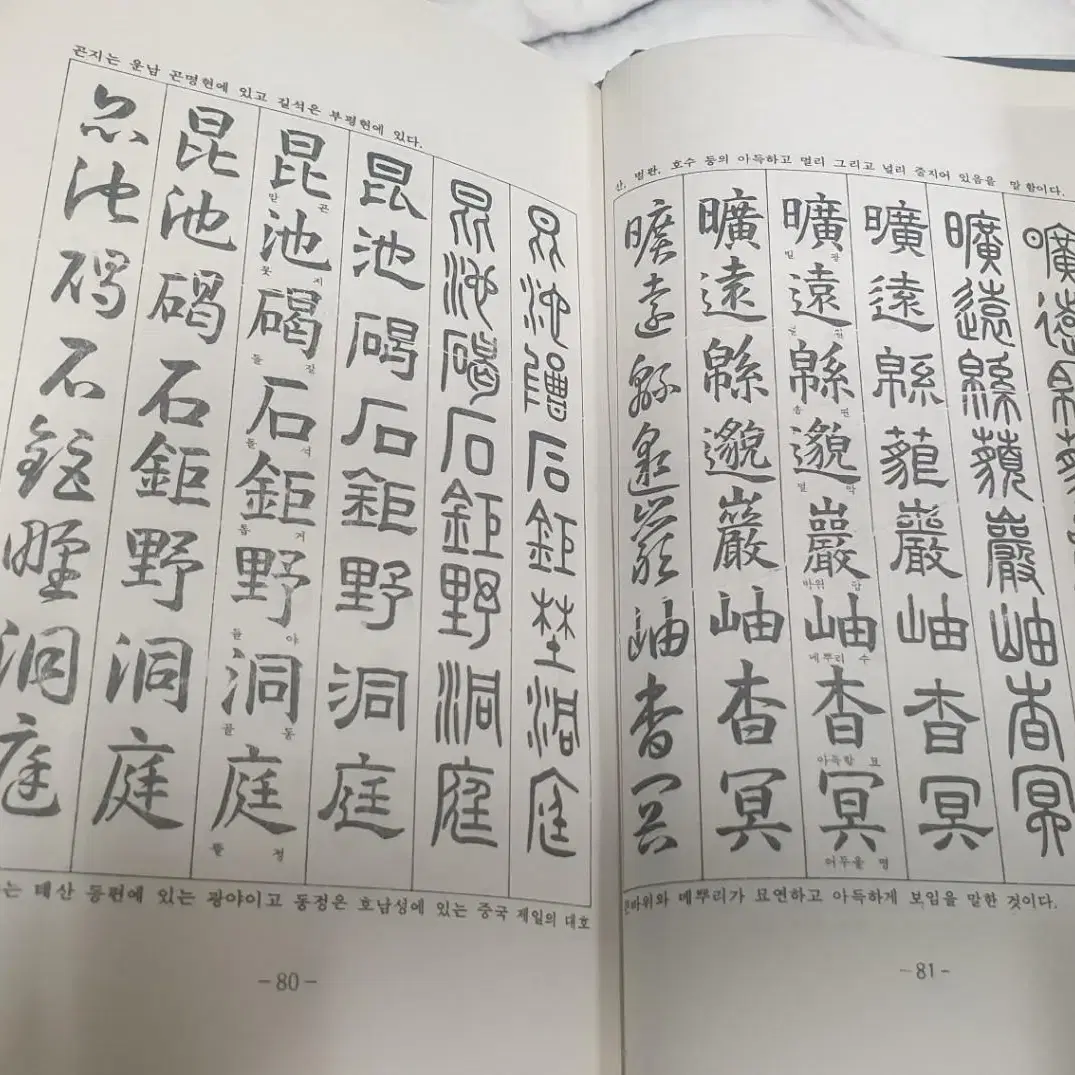 곤지는 운남 곤명현에 있고 길석은 부평현에 있다.
昆池碣石鉅野洞庭
昆池碣石鉅野洞庭
昆池碣石鉅野洞庭
맏 곤
못 지
돌 길
돌 석
톱 거
들 야
골 동
뜰 정
昆池碣石鉅野洞庭
昆池碣石鉅野洞庭
昆池碣石鉅野洞庭
는 태산 동편에 있는 광야이고 동정은 호남성에 있는 중국 제일의 대호
-80-
산, 벌판, 호수 등의 아득하고 멀리 그리고 널리 줄지어 있음을 말함이다.
曠遠緜邈巖岫杳冥
曠遠緜邈巖岫杳冥
曠遠緜邈巖岫杳冥
빌 광
멀 원
솜 면
멀 막
바위 암
메뿌리 수
아득할 묘
어두울 명
曠遠緜邈巖岫杳冥
曠遠緜邈巖岫杳冥
曠遠緜
바위와 메뿌리가 묘연하고 아득하게 보임을 말한 것이다.
-81-